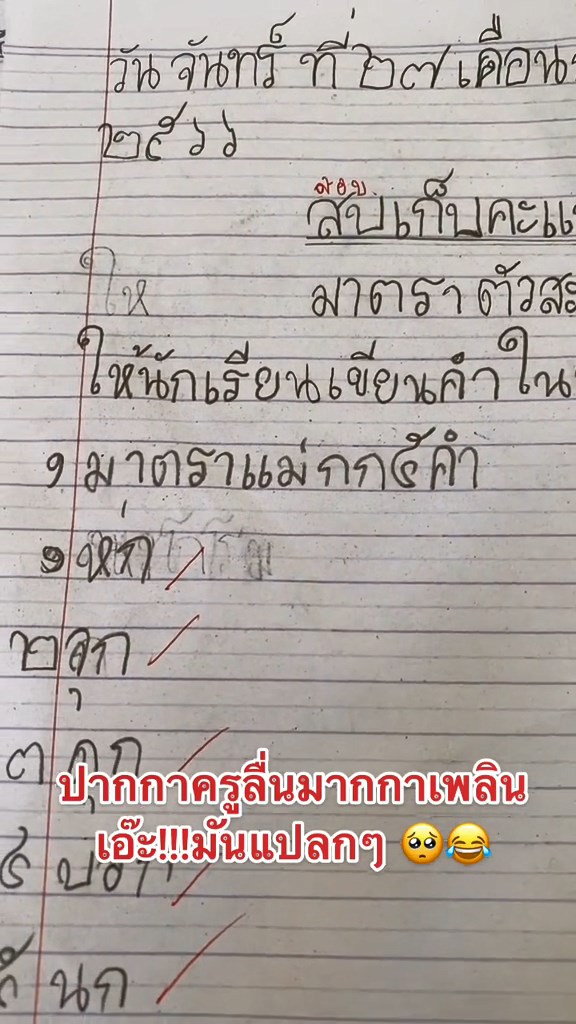 วัน จันทร์ ที่ ๒๗ เดือน
๒๕๖๖
สอบ
สบเก็บคะแ
ให
มาตรา ตัวสะ
ให้นักเรียนเขียนคำ ใน
๑ มาตราแม่ กก ๕ คำ
๑ ห่ก
๒ จุก
๓ คุก
ปากกาครูลื่นมากกาเพลิน
เอ๊ะ!!!มันแปลกๆ 🥺😂
๔
๕ นก